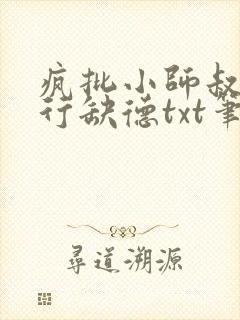 疯批小师叔
行缺德txt筆
尋道溯源